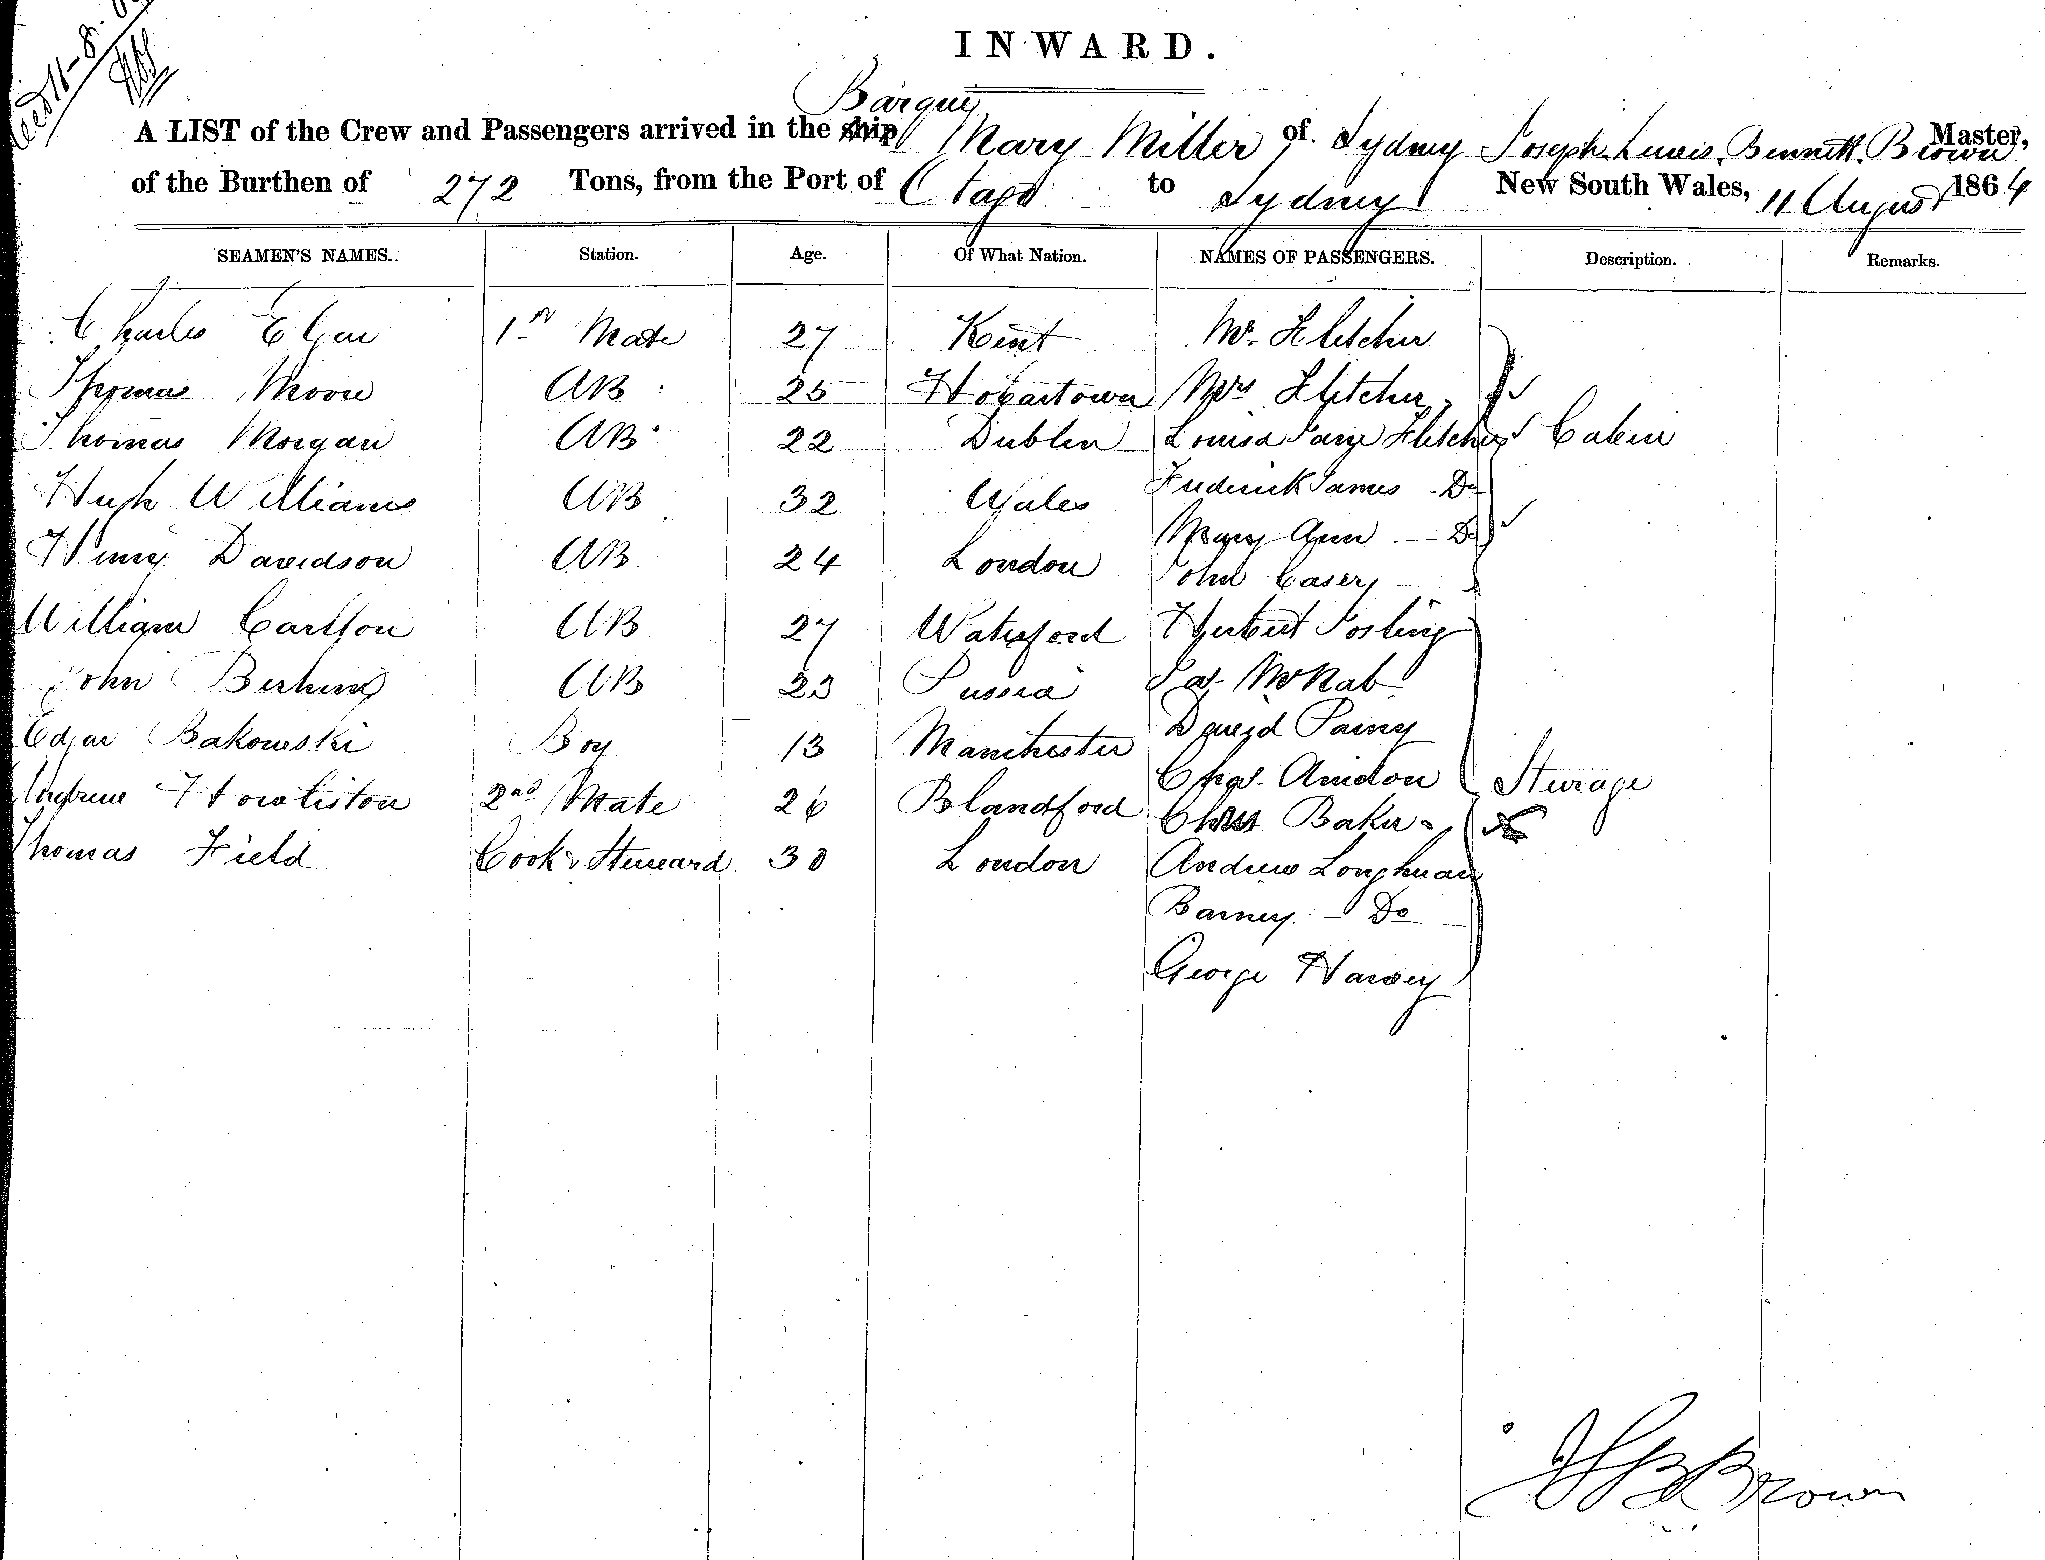 INWARD.
Barque
A LIST of the Crew and Passengers arrived in the ship Mary Miller of Sydney Joseph Lewis Bennett Brown Master,
of the Burthen of 272 Tons, from the Port of Otago to Sydney New South Wales, 11 August 1864
SEAMEN'S NAMES. Station. Age. Of What Nation. NAMES OF PASSENGERS. Description. Remarks.
Charles Elgar 1st Mate 27 Kent Mr. Fletcher
Thomas Moore AB 25 Hobartown Mrs Fletcher
Thomas Morgan AB 22 Dublin Louisa Jane Fletcher Cabin
Hugh Williams AB 32 Wales Frederick James Do
Mary Ann - Do
Henry Davidson AB 24 London John Casey
William Carlson AB 27 Waterford Herbert Posling
John AB 23 Jas. McNab
David
Edgar Bakowski Boy 13 Manchester
Chas. Steerage
Howliston 2nd Mate 26 Blandford Baker
Thomas Field Cook & Steward 30 London Andrew Longhman
Barney - Do
George Harvey
JLB Brown